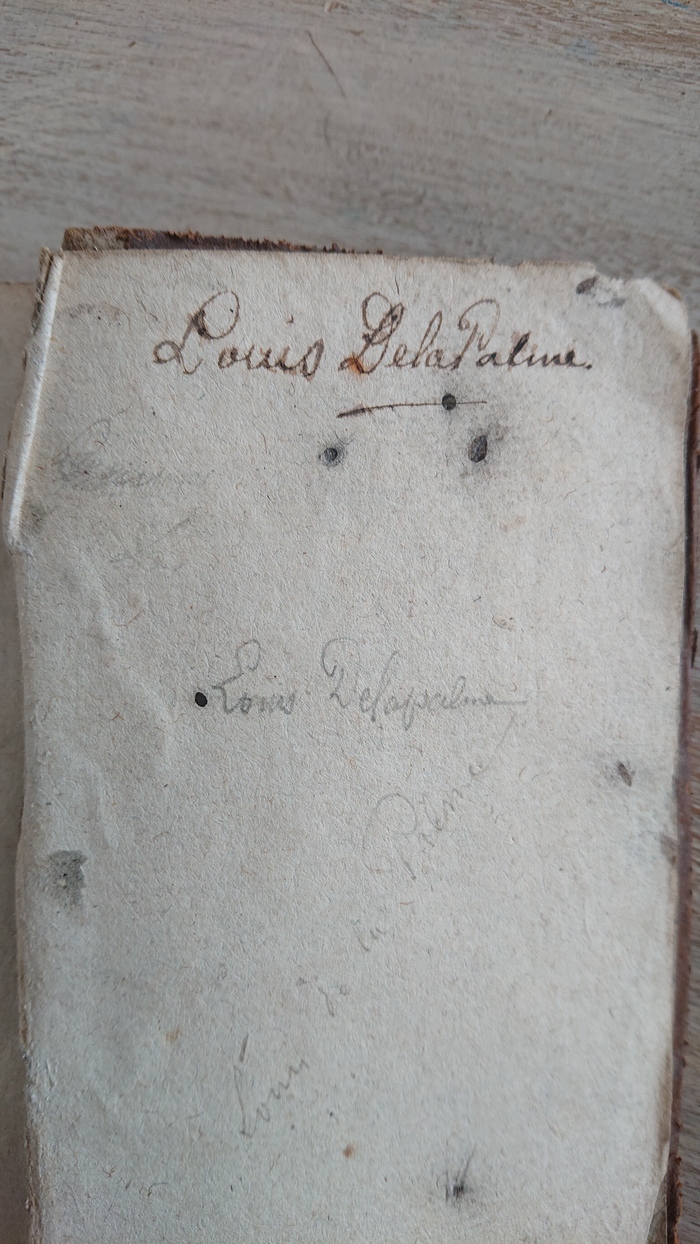 Louis DelaPalme.
Louis Delapalme
Louis de la Palme